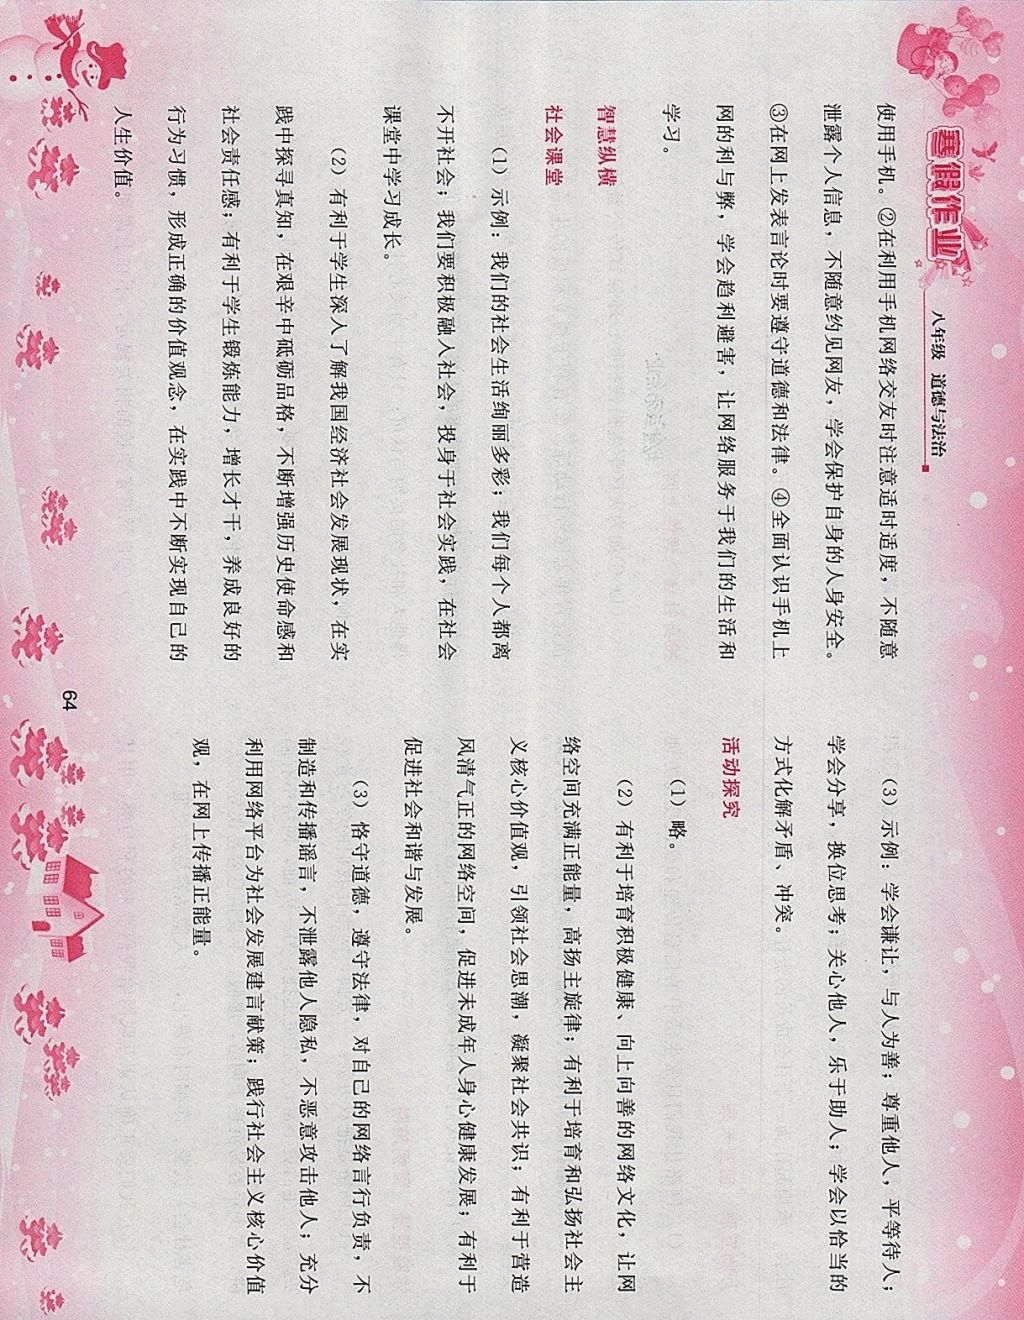 寒假作业
八年级 道德与法治
使用手机。②在利用手机网络交友时注意适时适度，不随意
泄露个人信息，不随意约见网友，学会保护自身的人身安全。
③在网上发表言论时要遵守道德和法律。④全面认识手机上
网的利与弊，学会趋利避害，让网络服务于我们的生活和
学习。
智慧纵横
社会课堂
（1）示例：我们的社会生活绚丽多彩；我们每个人都离
不开社会；我们要积极融入社会，投身于社会实践，在社会
课堂中学习成长。
（2）有利于学生深入了解我国经济社会发展现状，在实
践中探寻真知，在艰辛中砥砺品格，不断增强历史使命感和
社会责任感；有利于学生锻炼能力，增长才干，养成良好的
行为习惯，形成正确的价值观念，在实践中不断实现自己的
人生价值。
（3）示例：学会谦让，与人为善；尊重他人，平等待人；
学会分享，换位思考；关心他人，乐于助人；学会以恰当的
方式化解矛盾、冲突。
活动探究
（1）略。
（2）有利于培育积极健康、向上向善的网络文化，让网
络空间充满正能量，高扬主旋律；有利于培育和弘扬社会主
义核心价值观，引领社会思潮，凝聚社会共识；有利于营造
风清气正的网络空间，促进未成年人身心健康发展；有利于
促进社会和谐与发展。
（3）恪守道德，遵守法律，对自己的网络言行负责，不
制造和传播谣言，不泄露他人隐私，不恶意攻击他人；充分
利用网络平台为社会发展建言献策；践行社会主义核心价值
观，在网上传播正能量。
64